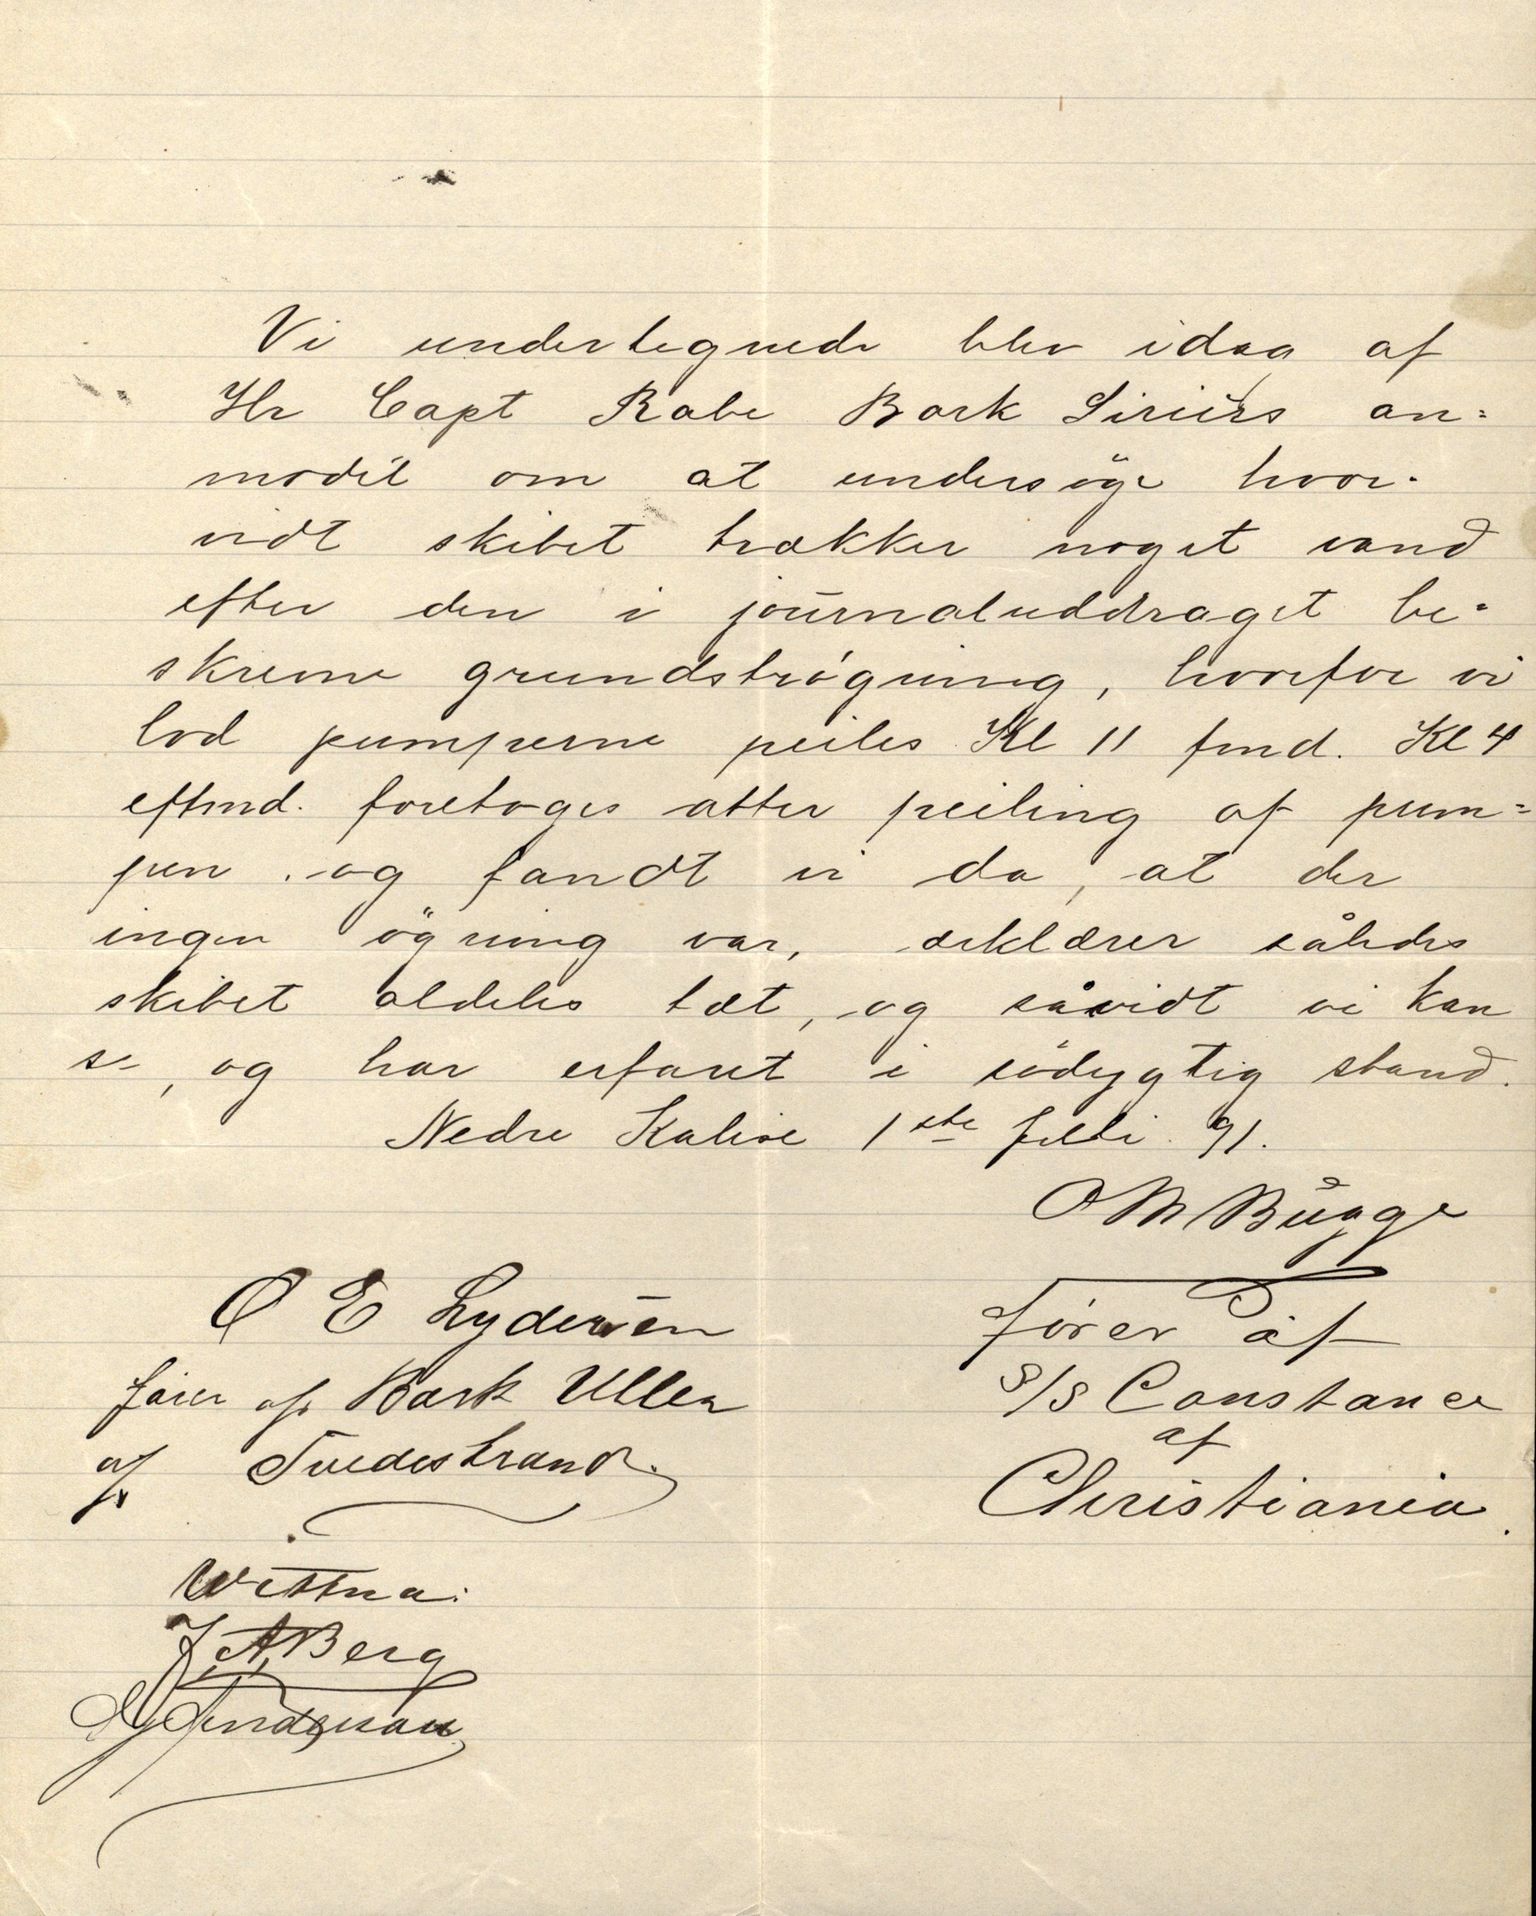 Vi undertegnede blev idag af
Hr Capt Rabe Bark Siriùs an=
modet om at undersöge hvor-
vidt skibet trækker noget vand
efter den i journaluddraget be=
skrevne grundstrøgning, hvorfor vi
lod pumperne peiles Kl 11 fmd. Kl 4
eftmd. foretoges atter peiling af pum=
pen . og fandt vi da, at der
ingen ögning var, erklærer således
skibet aldeles tæt, og såvidt vi kan
se, og har erfaret i södygtig stand.
Nedre Kalixe 1ste febr. 91.
O M Bugge
Fører af
S/S Constance
af
Christiania.
O E Lydersen
fører af Bark Ullea
af Tvedestrand.
Wittna:
J. A. Berg